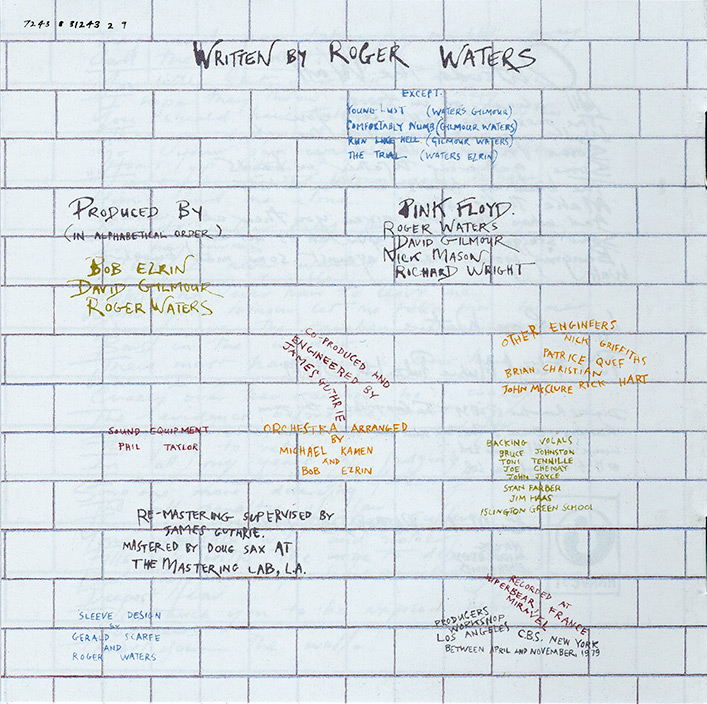 7243 8 31243 2 9
WRITTEN BY ROGER WATERS
EXCEPT.
YOUNG LUST (WATERS GILMOUR)
COMFORTABLY NUMB (GILMOUR WATERS)
RUN LIKE HELL. (GILMOUR WATERS)
THE TRIAL (WATERS EZRIN)
PRODUCED BY
(IN ALPHABETICAL ORDER)
BOB EZRIN
DAVID GILMOUR
ROGER WATERS
PINK FLOYD.
ROGER WATERS
DAVID GILMOUR
NICK MASON
RICHARD WRIGHT
CO-PRODUCED AND
ENGINEERED BY
JAMES GUTHRIE
OTHER ENGINEERS
NICK GRIFFITHS
PATRICE QUEF
BRIAN CHRISTIAN
JOHN McCLURE RICK HART
SOUND EQUIPMENT
PHIL TAYLOR
ORCHESTRA ARRANGED
BY
MICHAEL KAMEN
AND
BOB EZRIN
BACKING VOCALS
BRUCE JOHNSTON
TONI TENNILLE
JOE CHEMAY
JOHN JOYCE
STAN FARBER
JIM HAAS
ISLINGTON GREEN SCHOOL
RE-MASTERING SUPERVISED BY
JAMES GUTHRIE.
MASTERED BY DOUG SAX AT
THE MASTERING LAB, L.A.
SLEEVE DESIGN
BY
GERALD SCARFE
AND
ROGER WATERS
RECORDED AT
SUPERBEAR, FRANCE
MIRAVEL
PRODUCERS
WORKSHOP
LOS ANGELES C.B.S. NEW YORK
BETWEEN APRIL AND NOVEMBER, 1979